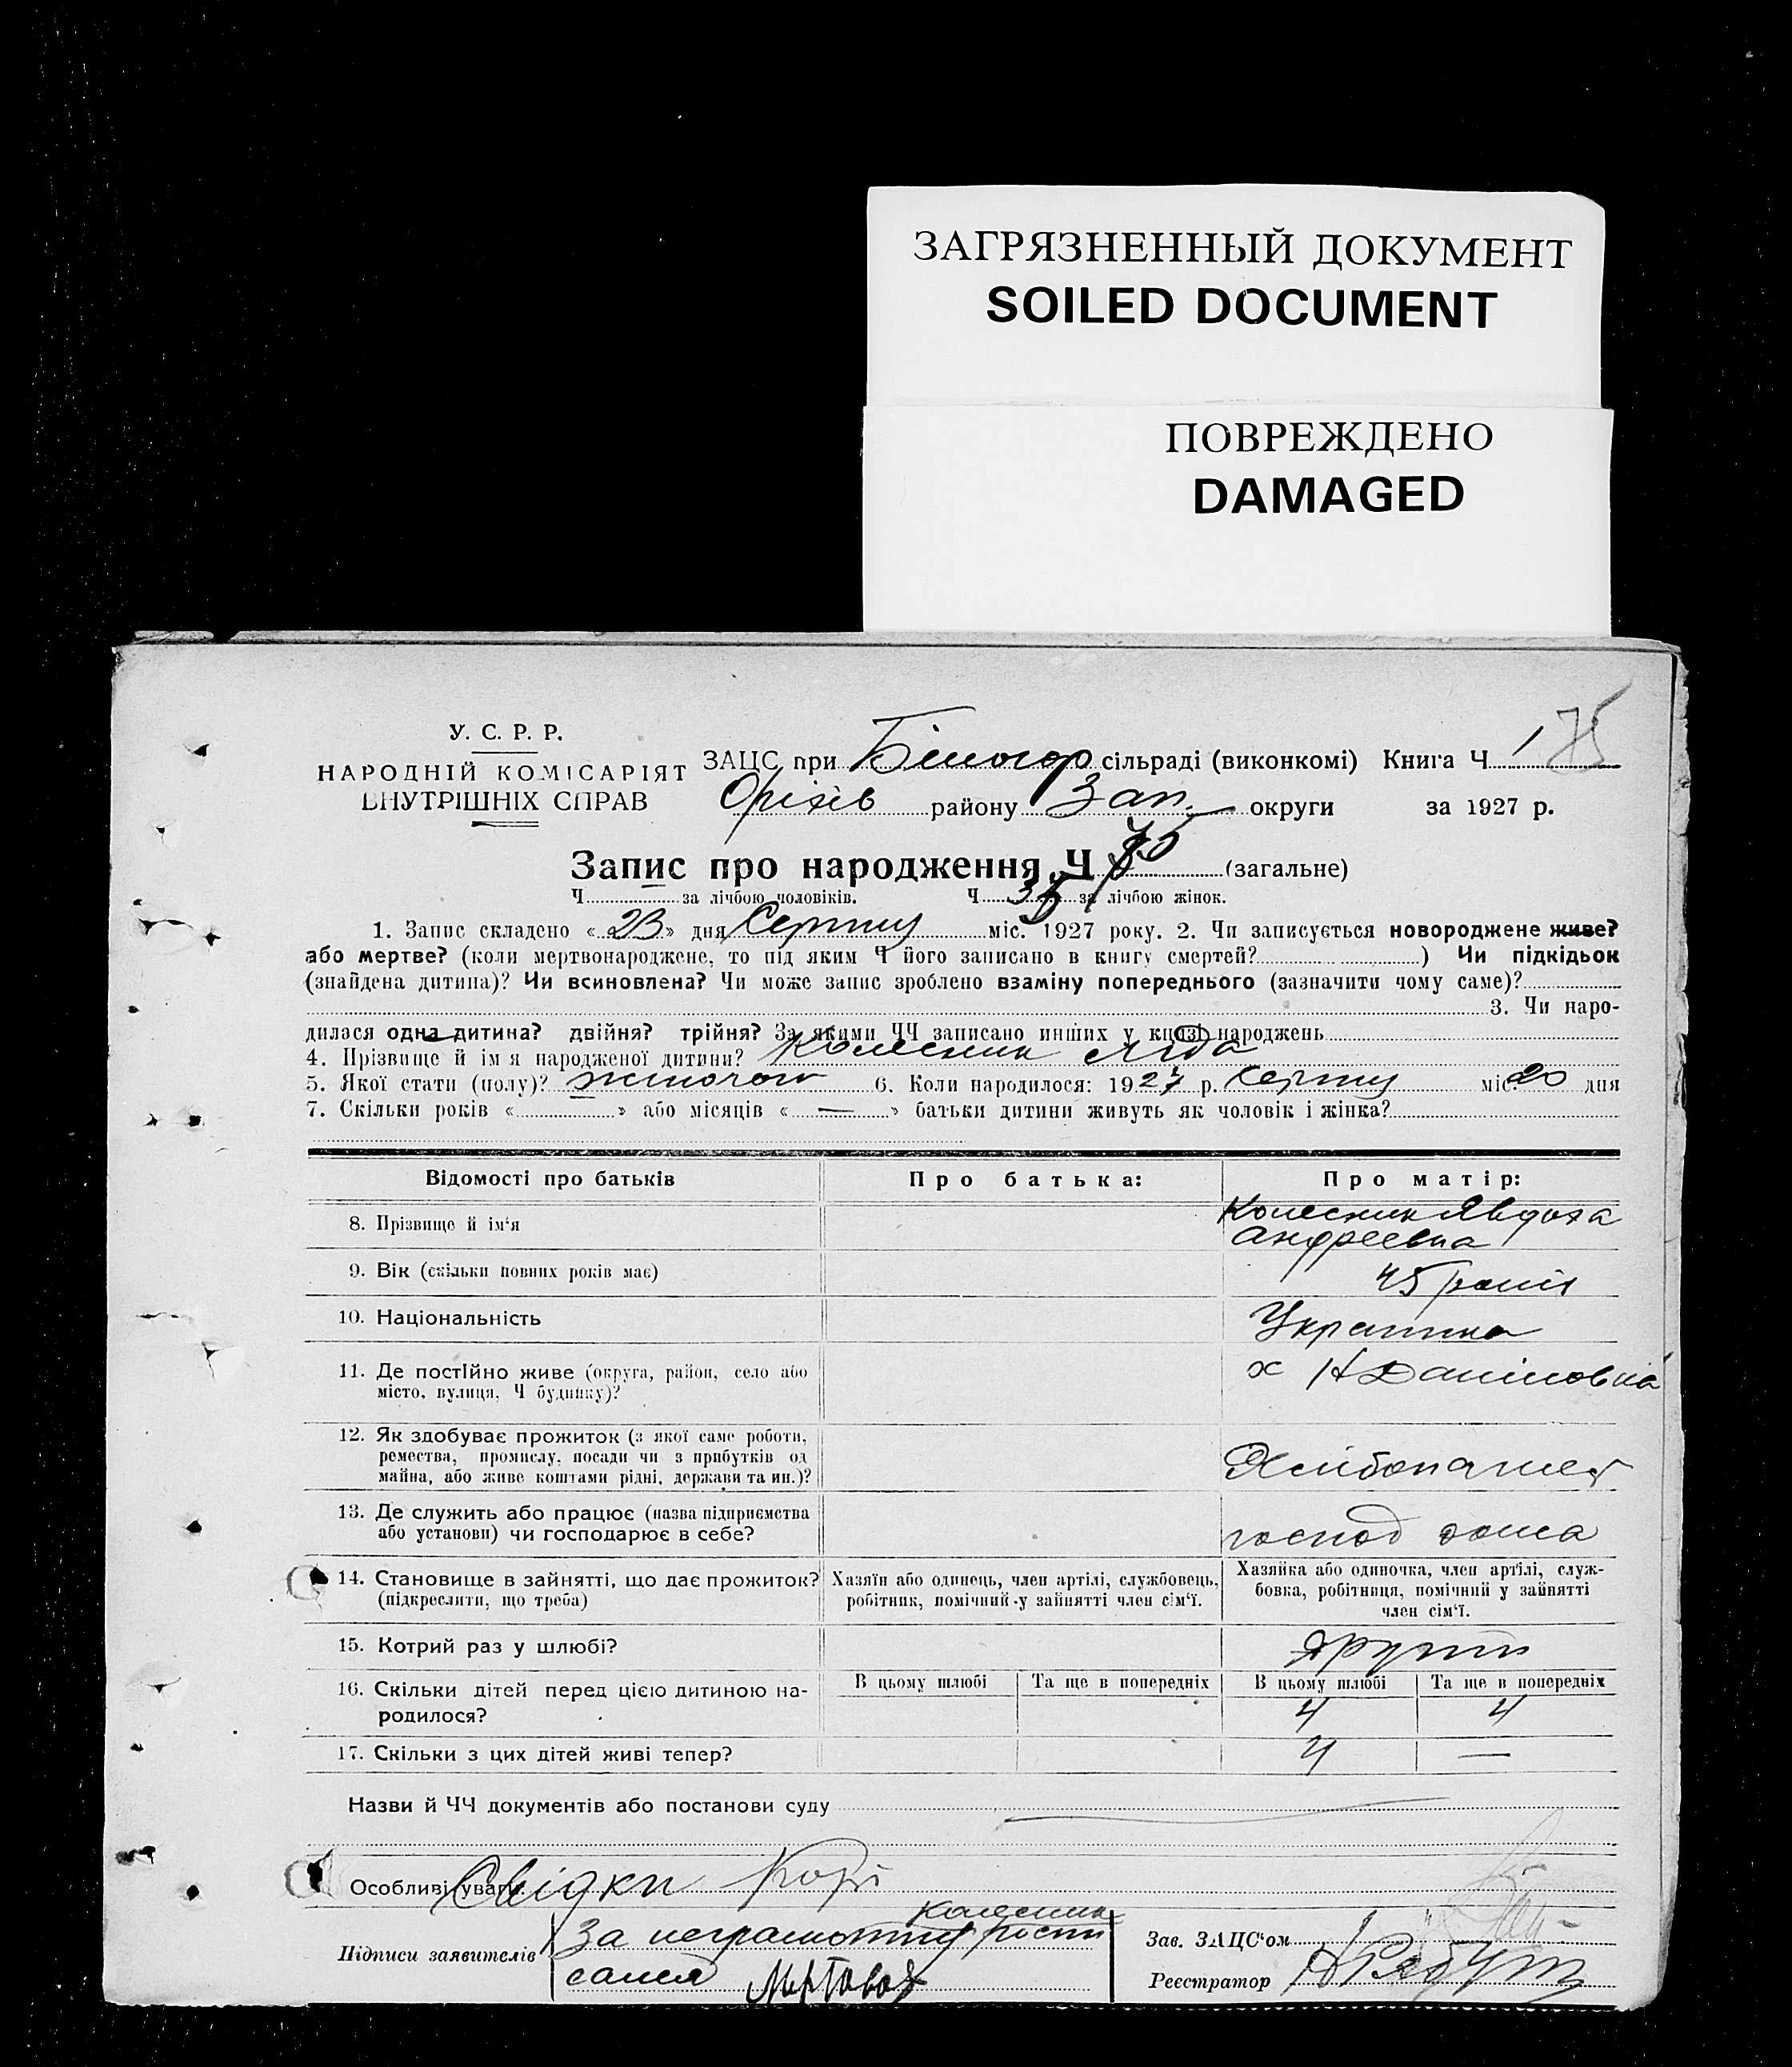 ЗАГРЯЗНЕННЫЙ ДОКУМЕНТ
SOILED DOCUMENT
ПОВРЕЖДЕНО
DAMAGED
75
У. С. Р. Р.
НАРОДНІЙ КОМІСАРІЯТ
ВНУТРІШНІХ СПРАВ
ЗАЦС при Білогор сільраді (виконкомі) Книга Ч 1
Оріхів району Зап. округи за 1927 р.
Запис про народження Ч (загальне)
Ч за лічбою чоловіків. Ч 35 за лічбою жінок.
1. Запис складено «23» дня Серпня міс. 1927 року. 2. Чи записується новороджене живе?
або мертве? (коли мертвонароджене, то під яким Ч його записано в книгу смертей? ) Чи підкідьок
(знайдена дитина)? Чи всиновлена? Чи може запис зроблено взаміну попереднього (зазначити чому саме)?
3. Чи наро-
дилася одна дитина? двійня? трійня? За якими ЧЧ записано инших у книзі народжень
4. Прізвище й ім я народженої дитини? Колесник Ліда
5. Якої стати (полу)? жиночої 6. Коли народилося: 1927 р. Серпня міс. 20 дня
7. Скільки років « » або місяців « — » батьки дитини живуть як чоловік і жінка?
Відомості про батьків Про батька: Про матір:
8. Прізвище й ім‘я Колесник Явдоха
Андреевна
9. Вік (скільки повних років має) 45 років
10. Національність Украинка
11. Де постІйно живе (округа, район, село або
місто, вулиця, Ч будинку)?
х Н Данíловка
12. Як здобуває прожиток (з якої саме роботи,
ремества, промислу, посади чи з прибутків од
майна, або живе коштами рідні, держави та ин.)?
Хлібопашес
13. Де служить або працює (назва підприємства
або установи) чи господарює в себе?
господ дома
14. Становище в зайнятті, що дає прожиток?
(підкреслити, що треба)
Хазяїн або одинець, член артілі, службовець,
робітник, помічний у зайнятті член сім‘ї.
Хазяйка або одиночка, член артілі, служ-
бовка, робітниця, помічний у зайнятті
член сім‘ї.
15. Котрий раз у шлюбі? другий
16. Скільки дітей перед цією дитиною на-
родилося?
В цьому шлюбі Та ще в попередніх В цьому шлюбі Та ще в попередніх
4 4
17. Скільки з цих дітей живі тепер? 4 —
Назви й ЧЧ документів або постанови суду
Особливі уваги Свідки
Колесник
Підписи заявителів За неграмотну
Зав. ЗАЦС‘ом
Реєстратор